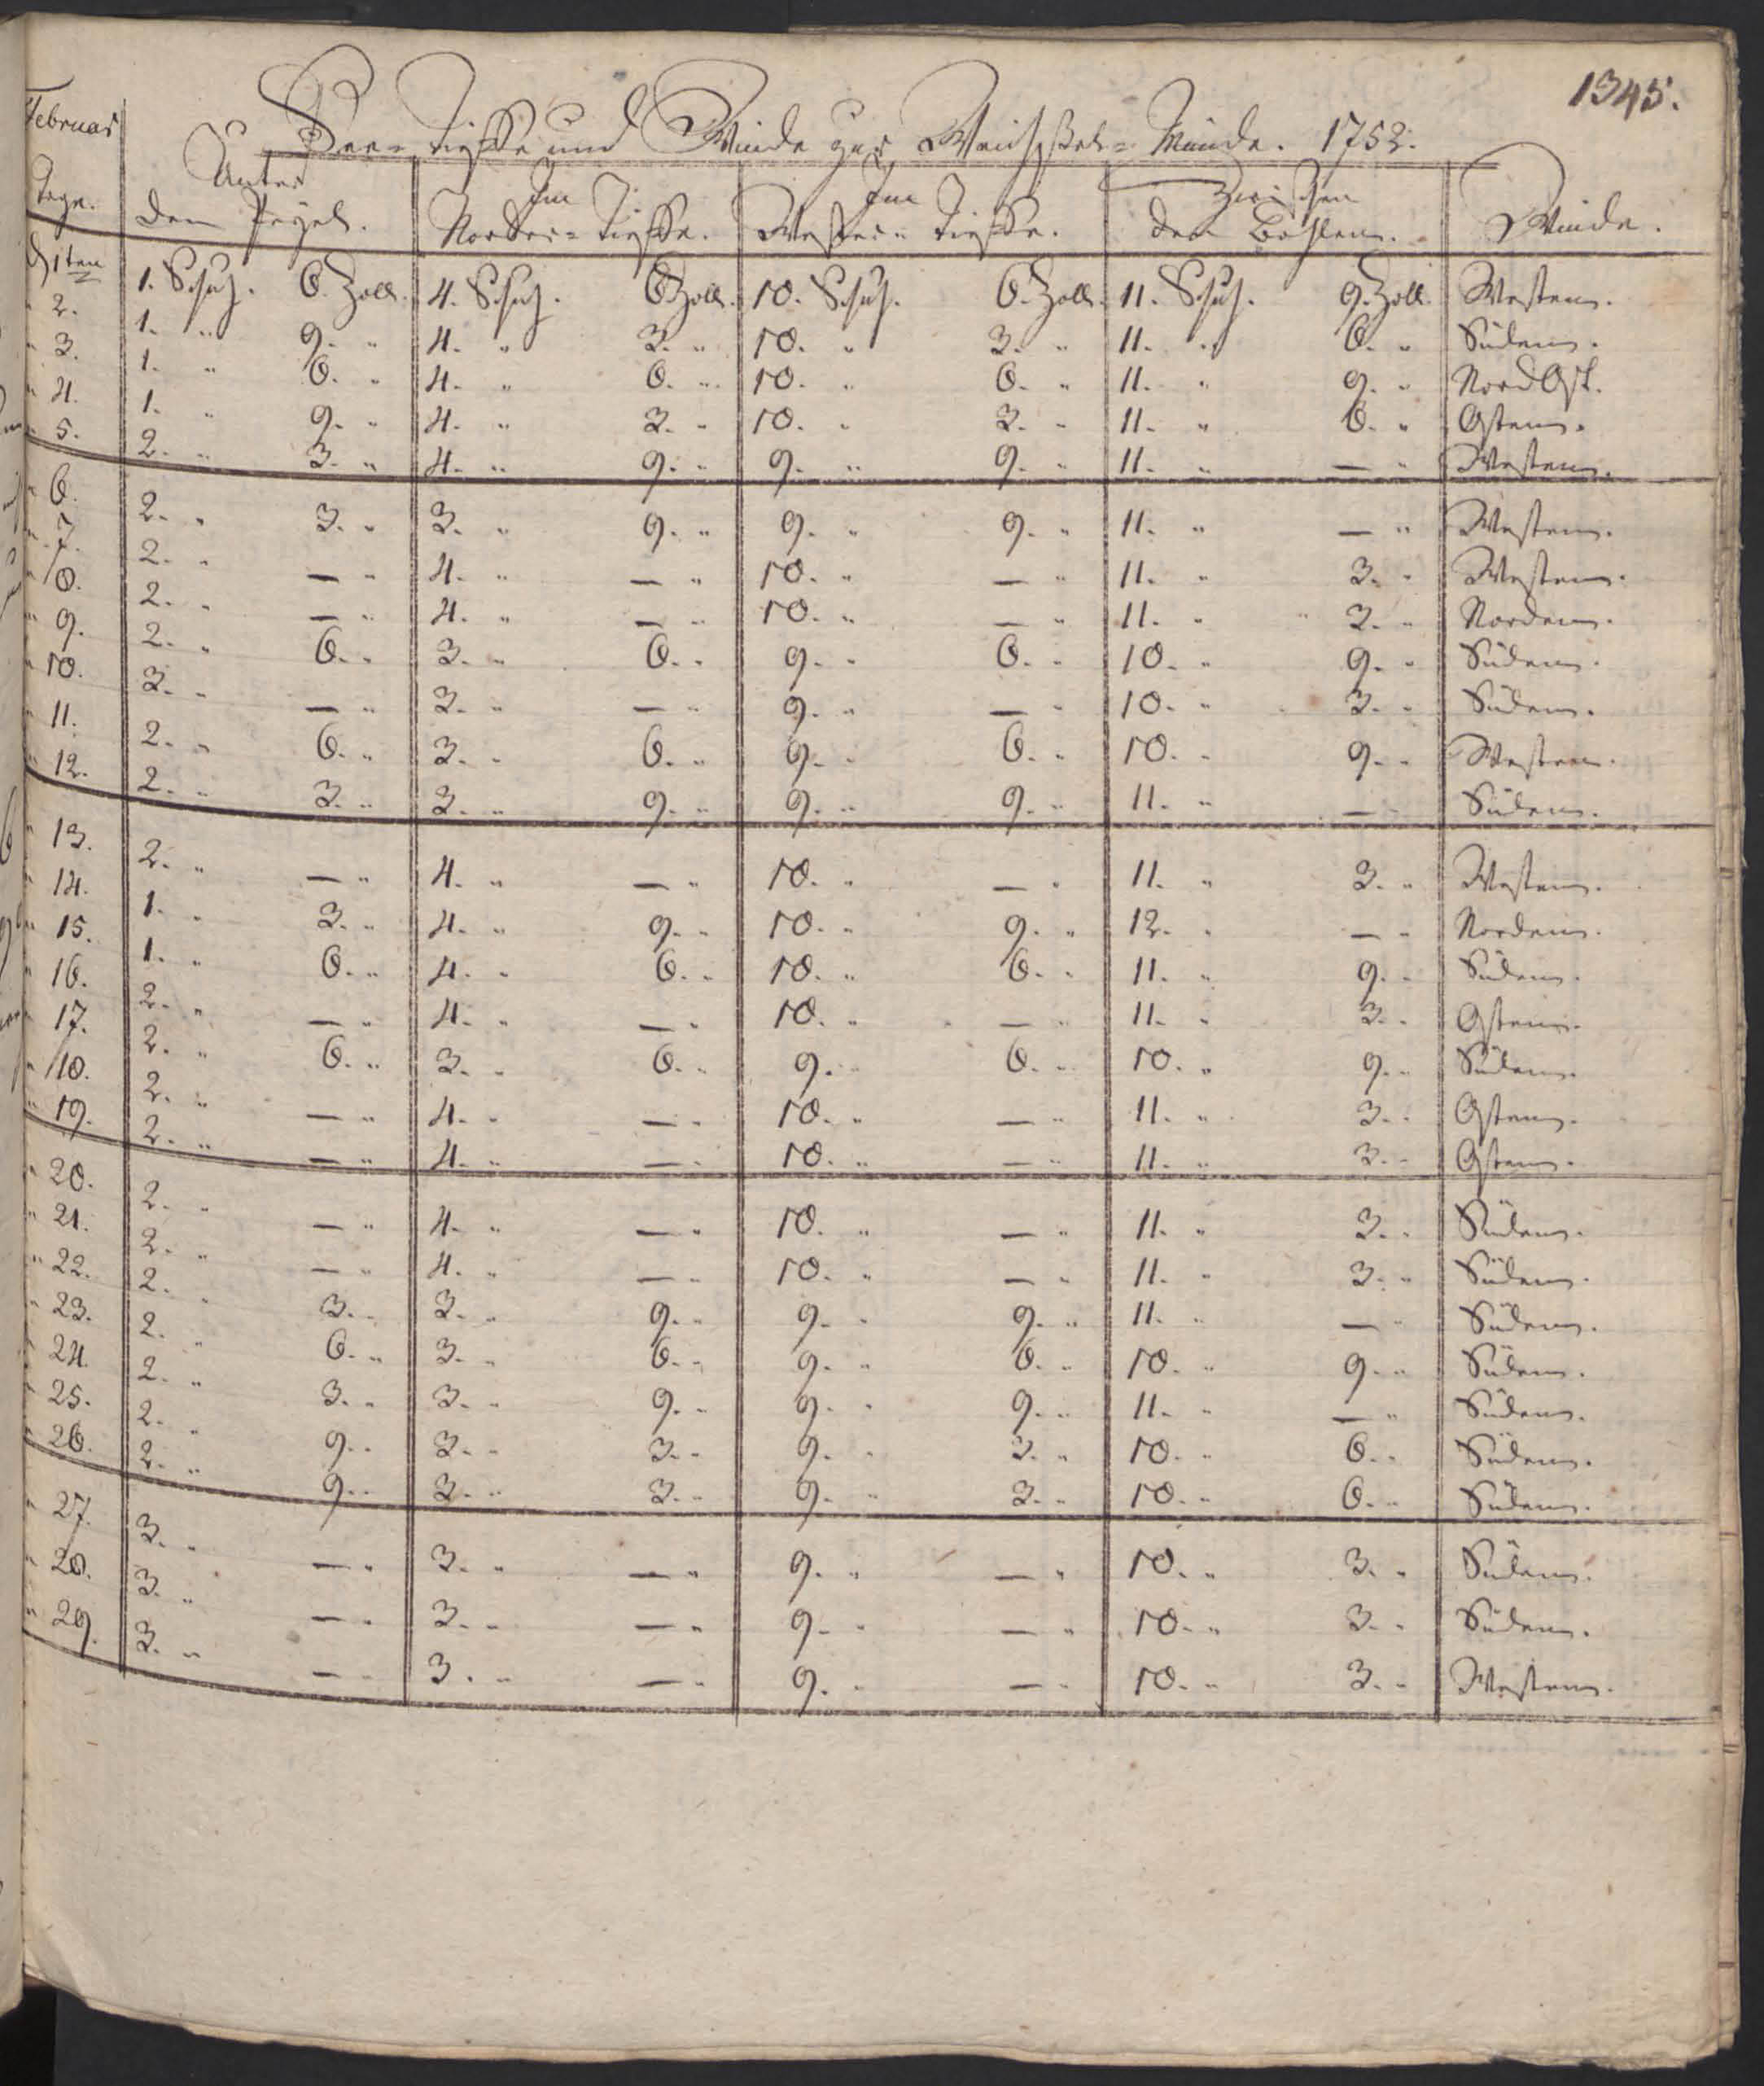 1345.
Februar
See- Tieffe und Winde zur Weichsel- Münde. 1752.
Tage. Unter dem Pegel. Im Norder- Tieffe. Im Wester- Tieffe. Zwischen den Bohlen. Winde.
d 1ten 1. Schuh. 6. Zoll. 4. Schuh. 6 Zoll. 10. Schuh. 6. Zoll. 11. Schuh. 9. Zoll. Westen.
" 2. 1. " 9. " 4. " 3. " 10. " 3. " 11. " 6. " Süden.
" 3. 1. " 6. " 4. " 6. " 10. " 6. " 11. " 9. " Nord Ost.
" 4. 1. " 9. " 4. " 3. " 10. " 3. " 11. " 6. " Osten.
" 5. 2. " 3. " 4. " 9. " 9. " 9. " 11. " — " Westen.
" 6. 2. " 3. " 3. " 9. " 9. " 9. " 11. " — " Westen.
" 7. 2. " — " 4. " — " 10. " — " 11. " 3. " Westen.
" 8. 2. " — " 4. " — " 10. " — " 11. " 3. " Norden.
" 9. 2. " 6. " 3. " 6. " 9. " 6. " 10. " 9. " Süden.
" 10. 3. " — " 3. " — " 9. " — " 10. " 3. " Süden.
" 11. 2. " 6. " 3. " 6. " 9. " 6. " 10. " 9. " Westen.
" 12. 2. " 3. " 3. " 9. " 9. " 9. " 11. " — " Süden.
" 13. 2. " — " 4. " — " 10. " — " 11. " 3. " Westen.
" 14. 1. " 3. " 4. " 9. " 10. " 9. " 12. " — " Norden.
" 15. 1. " 6. " 4. " 6. " 10. " 6. " 11. " 9. " Süden.
" 16. 2. " — " 4. " — " 10. " — " 11. " 3. " Osten.
" 17. 2. " 6. " 3. " 6. " 9. " 6. " 10. " 9. " Süden.
" 18. 2. " — " 4. " — " 10. " — " 11. " 3. " Osten.
" 19. 2. " — " 4. " — " 10. " — " 11. " 3. " Osten.
" 20. 2. " — " 4. " — " 10. " — " 11. " 3. " Süden.
" 21. 2. " — " 4. " — " 10. " — " 11. " 3. " Süden.
" 22. 2. " 3. " 3. " 9. " 9. " 9. " 11. " — " Süden.
" 23. 2. " 6. " 3. " 6. " 9. " 6. " 10. " 9. " Süden.
" 24. 2. " 3. " 3. " 9. " 9. " 9. " 11. " — " Süden.
" 25. 2. " 9. " 3. " 3. " 9. " 3. " 10. " 6. " Süden.
" 26. 2. " 9. " 3. " 3. " 9. " 3. " 10. " 6. " Süden.
" 27. 3. " — " 3. " — " 9. " — " 10. " 3. " Süden.
" 28. 3. " — " 3. " — " 9. " — " 10. " 3. " Süden.
" 29. 3. " — " 3. " — " 9. " — " 10. " 3. " Westen.